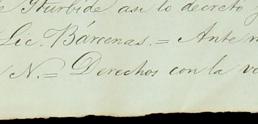 e Iturbide asi lo decretó y
Lic. Bárcenas.= Ante m
N.= Derechos con la v